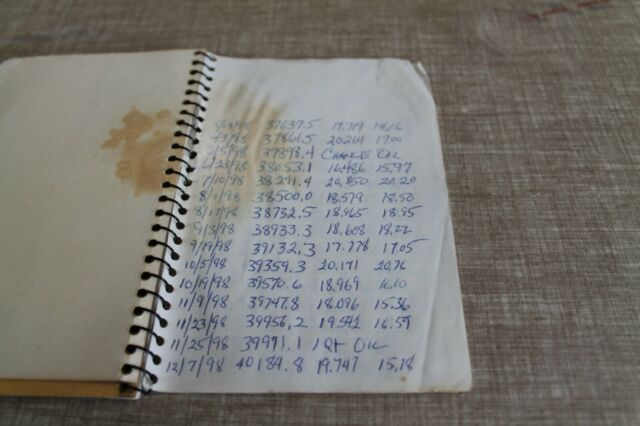 37637.5 19.719 14.16
4/3/98 37861.5 20.261 17.00
37898.4 CHANGE OIL
6/23/98 38053.1 16.486 15.97
7/10/98 38271.4 20.850 20.20
8/1/98 38500.0 18.579 18.50
8/17/98 38732.5 18.965 18.95
9/3/98 38933.3 18.608 18.22
9/19/98 39132.3 17.778 17.05
10/5/98 39359.3 20.171 20.76
10/19/98 39570.6 18.969 16.10
11/9/98 39747.8 18.096 15.36
11/23/98 39956.2 19.542 16.59
11/25/98 39971.1 1 QT OIL
12/7/98 40184.8 19.747 15.78